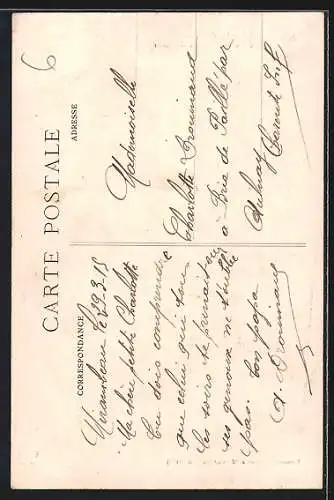 6
CARTE POSTALE
CORRESPONDANCE
ADRESSE
Mirambeau le 29.3.15
Ma chère petite Charlotte
tu dois comprendre
que celui qui tous
les soirs te prenait sur
ses genoux ne t'oublie
pas. ton papa
A. Drouinaud
Mademoiselle
Charlotte Drouinaud
à Brie de Paillé par
Aulnay Charente Inf